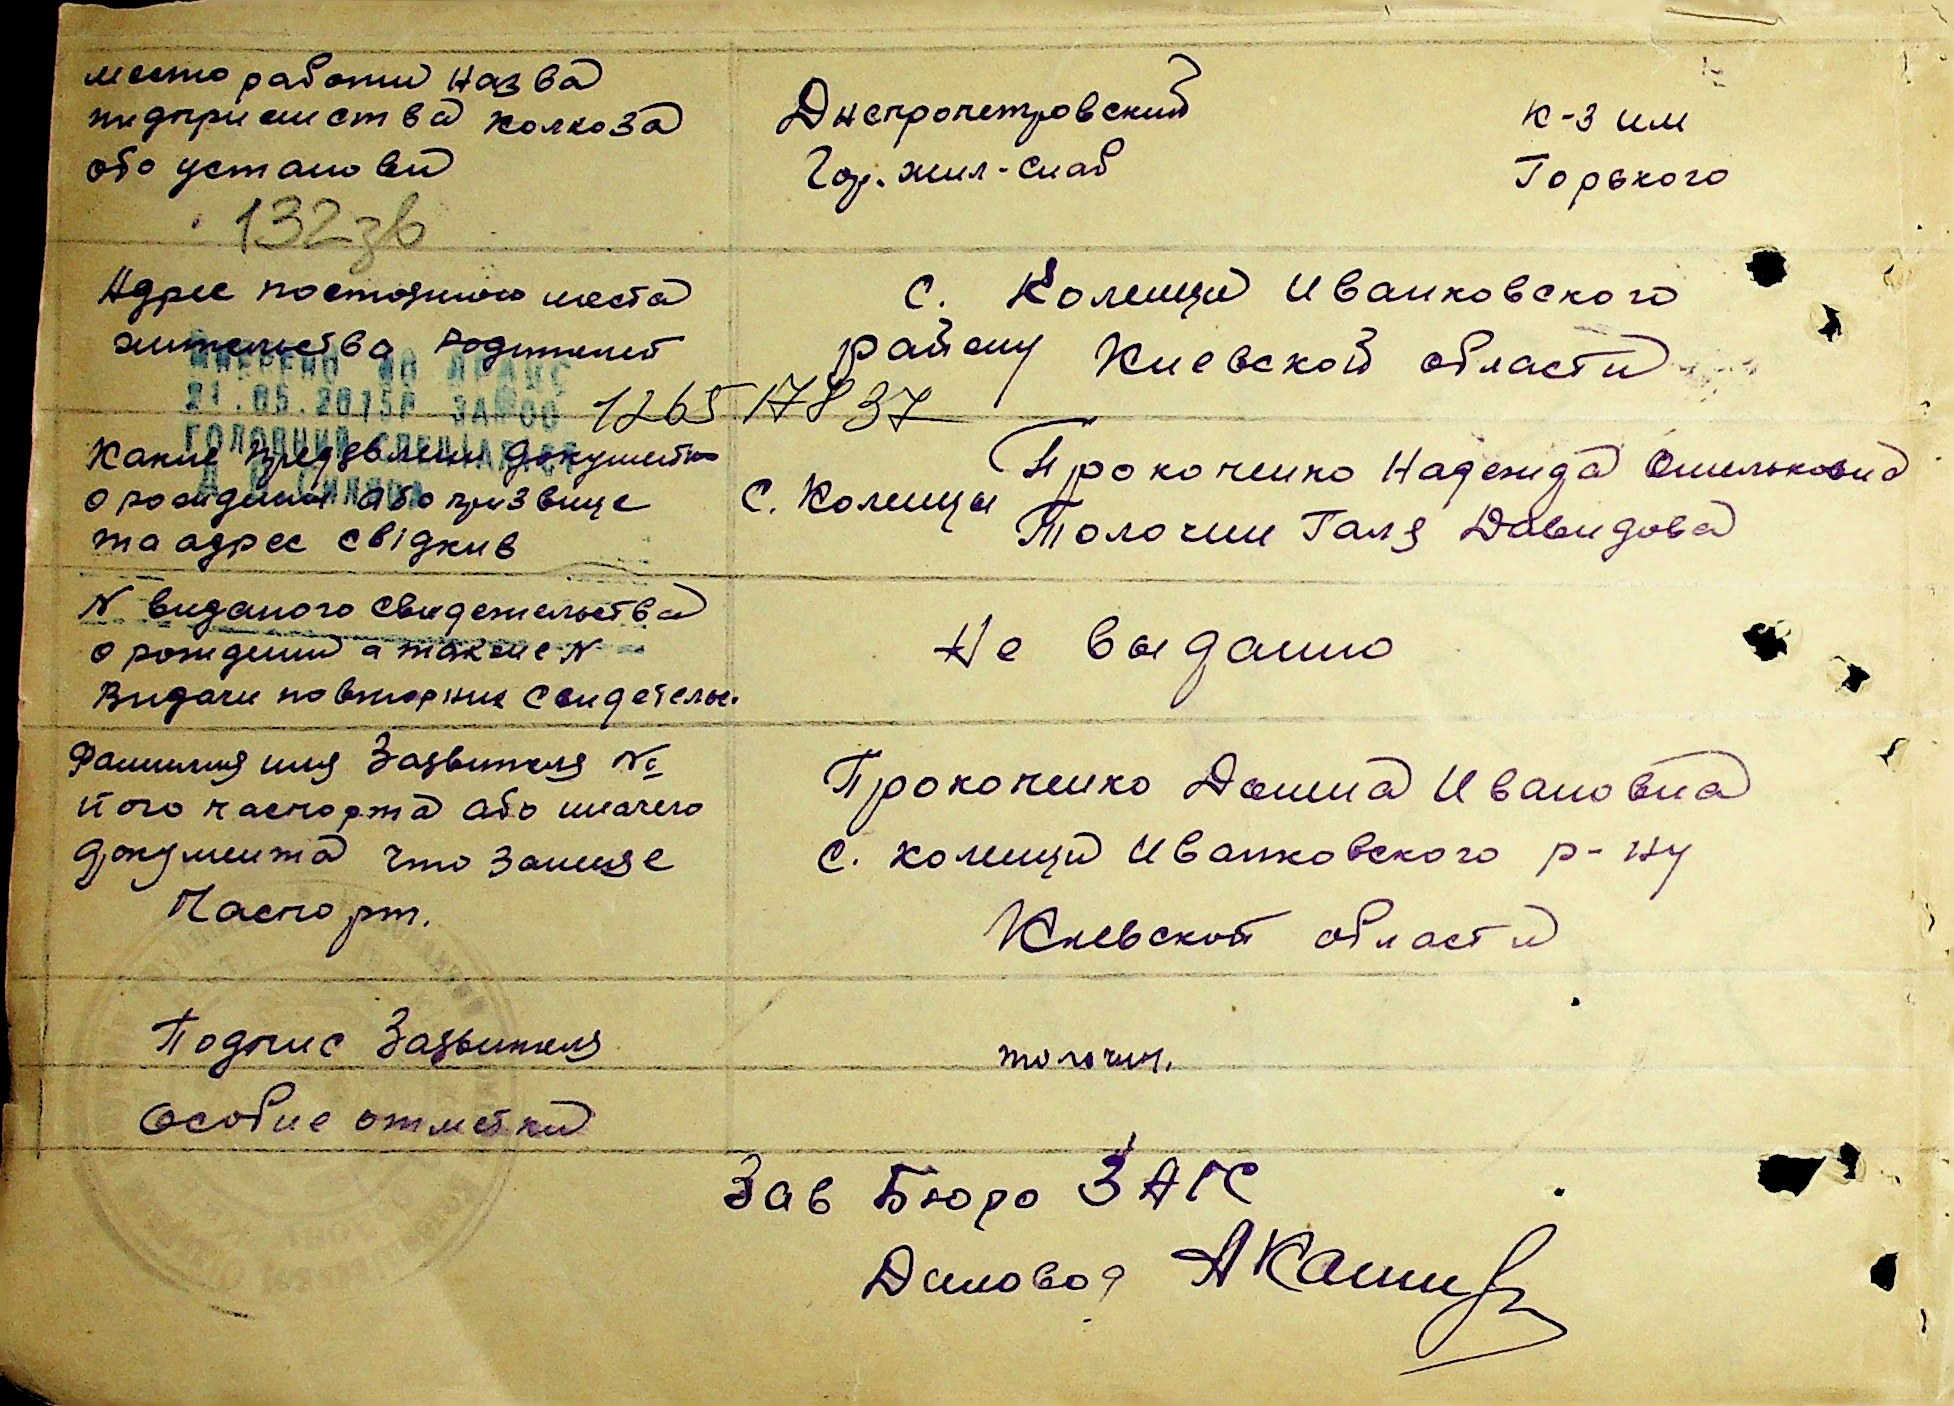 место работи назва
підприємства колхоза
або установи
Днепропетровский
Гор. жил-снаб
К-з им
Горького
132 зв
Адрес постоянного места
жительства Родителей
с. Коленци Иванковского
району Киевской области
ВНЕРЕНО ДО ДРАЦС
21.05.2015Р ЗА №00
ГОЛОВНИЙ СПЕЦІАЛІСТ
1265 17837
Какие предявлени документи
о рождении або призвище
та адрес свідкив
с. Коленцы
Прокопенко Надежда Омельковна
Толочин Галя Давидова
N виданого свидетельства
о рождении а также N
Видачи повторних свидетельс.
Не выданно
Фамилия имя Заявителя №
його паспорта або иначего
документа что заменяе
Паспорт.
Прокопенко Домна Ивановна
с. коленци Иванковского р-ну
Киевской области
Подпис Заявителя
толочин.
Особие отметки
Зав Бюро ЗАГС
Диловод